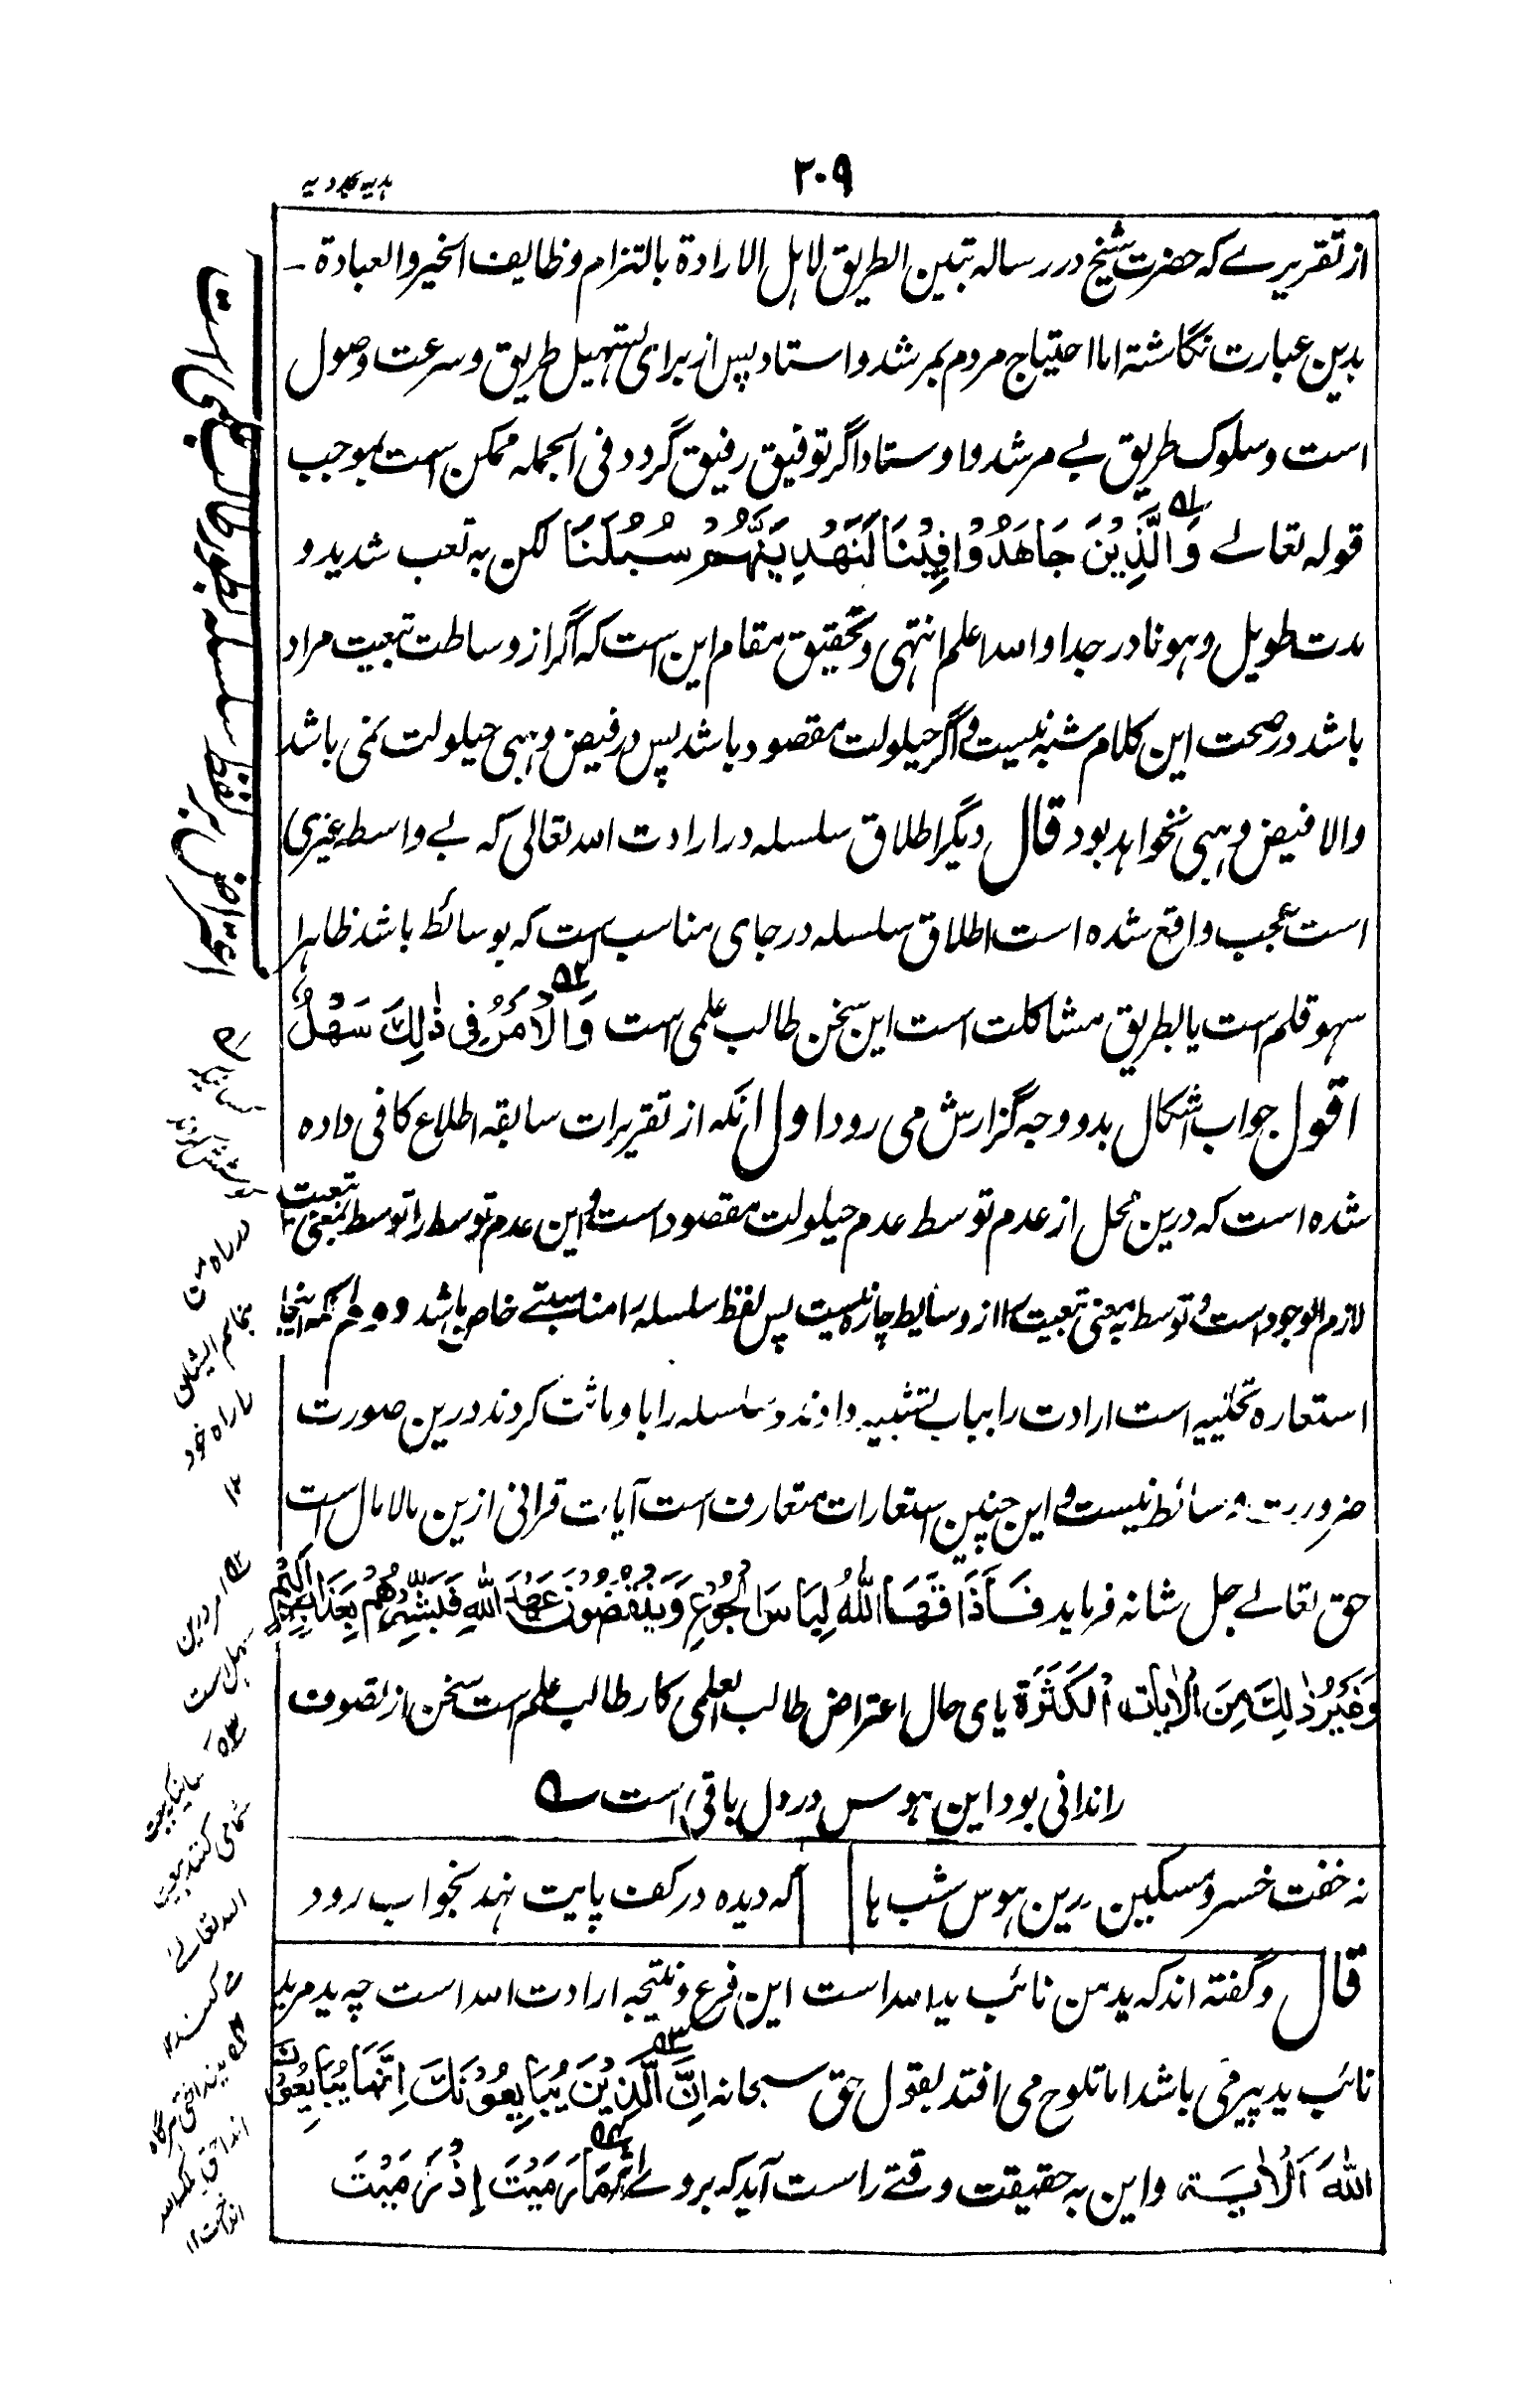 ۲۰۹
ہدیہ مجددیہ
از تقریرے کہ حضرت شیخ در رسالہ تبئین الطریق لاہل الارادة بالتزام وظایف الخیر والعبادة ۔
بدین عبارت نگاشتہ اما احتیاج مردم بمرشد و استاد پس از برای تسہیل طریق و سرعت وصول
است و سلوک طریق بے مرشد و اوستاد اگر توفیق رفیق گردد فی الجملہ ممکن است بموجب
قولہ تعالے وَالَّذِیْنَ جَاهَدُوْا فِیْنَا لَنَهْدِیَنَّهُمْ سُبُلَنَا لکن بہ تعب شدید و
مدت طویل و ہو نادر جدا واللہ اعلم انتہی و تحقیق مقام این است کہ اگر از وساطت تبعیت مراد
باشد در صحت این کلام شبہ نیست و اگر حیلولت مقصود باشد پس در فیض وہبی حیلولت نمی باشد
والا فیض وہبی نخواہد بود قال دیگر اطلاق سلسلہ در ارادت اللہ تعالی کہ بے واسطہ غیری
است عجب واقع شدہ است اطلاق سلسلہ در جای مناسب است کہ بوسائط باشد ظاہرا
سہو قلم است یا بطریق مشاکلت است این سخن طالب علمی است وَالْاَمْرُ فِی ذٰلِكَ سَهْلٌ
اقول جواب اشکال بدو وجہ گزارش می رود اول انکہ از تقریرات سابقہ اطلاع کافی دادہ
شدہ است کہ درین محل از عدم توسط عدم حیلولت مقصود است و این عدم توسط را توسط بمعنی تبعیت
لازم الوجود است و توسط بہ معنی تبعیت را از وسایط چارہ نیست پس لفظ سلسلہ را مناسبتے خاص باشد دوم انکہ اینجا
استعارہ تخئیلیہ است ارادت را بباب تشبیہ دادند و سلسلہ را با و ثابت کردند درین صورت
ضرورت وسائط نیست و این چنین استعارات متعارف است آیات قرانی ازین مالامال است
حق تعالے جل شانہ فرماید فَاَذَاقَهَا اللهُ لِبَاسَ الْجُوْعِ وَیَنْقُضُوْنَ عَهْدَ اللهِ فَبَشِّرْهُمْ بِعَذَابٍ اَلِیْمٍ
وَغَیْرُ ذٰلِكَ مِنَ الْاٰیَاتِ الْکَثَرَة یای حال اعتراض طالب العلمی کار طالب علم است سخن از تصوف
راندانی بود این ہوس در دل باقی است ؎
نہ خفت خسرو مسکین درین ہوس شب ہا کہ دیدہ در کف پایت نہد بخواب رود
قال و گفتہ اند کہ ید من نائب ید اللہ است این فرع و نتیجہ ارادت اللہ است چہ ید مرید
نائب ید پیر می باشد اما تلوح می افتد بقول حق سبحانہ اِنَّ الَّذِیْنَ یُبَایِعُوْنَكَ اِنَّمَا یُبَایِعُوْنَ
اللهَ اَلْاٰیَة و این بہ حقیقت وقتے راست آید کہ بروے اثر مَا رَمَیْتَ اِذْ رَمَیْتَ
اعتراض بر لفظ سلسلہ بطور طالب علمی است
در راہ من
راہ خود
۱۲
امر درین
سہل است
اللہ تعالے